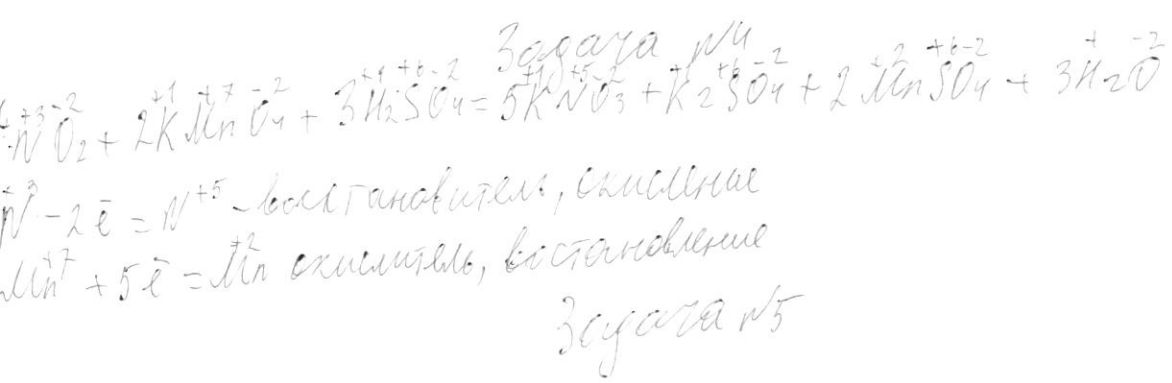 Задача №4
NO₂ + 2KMnO₄ + 3H₂SO₄ = 5KNO₃ + K₂SO₄ + 2MnSO₄ + 3H₂O
N⁺³ - 2ē = N⁺⁵ - восстановитель, окисление
Mn⁺⁷ + 5ē = Mn⁺² окислитель, востановление
Задача №5